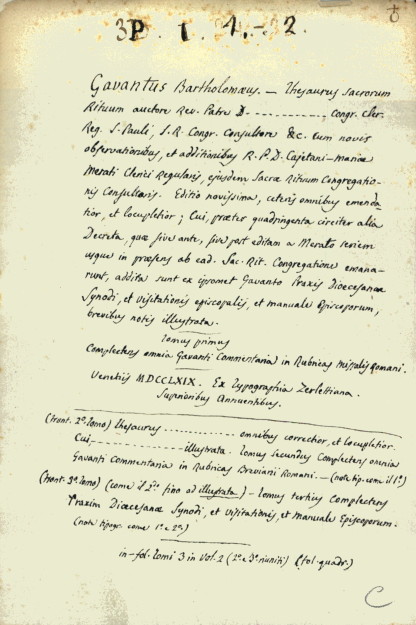 3P. I. 1.-2.
Gavantus Bartholomæus. — Thesaurus Sacrorum
Rituum auctore Rev. Patre D. - - - - - - - - - -, Congr. Cler.
Reg. S. Pauli, S. R. Congr. Consultore &c. cum novis
observationibus, et additionibus R. P. D. Cajetani-Mariæ
Merati Clerici Regularis, ejusdem Sacræ Rituum Congregatio-
nis Consultoris. Editio novissima, ceteris omnibus emenda-
tior, et locupletior; Cui, præter quadringenta circiter alia
Decreta, quæ sive ante, sive post editam a Merato seriem
usque in præsens ab ead. Sac. Rit. Congregatione emana-
runt, addita sunt ex ipsomet Gavanto Praxis Diœcesanæ
Synodi, et visitationis episcopalis, et manuale Episcoporum,
brevibus notis illustrata.
Tomus primus
Complectens omnia Gavanti Commentaria in Rubricas Missalis Romani.
Venetiis MDCCLXIX. Ex Typographia Zerlettiana.
Superioribus Annuentibus.
(front. 2º. tomo) Thesaurus - - - - - - - - - - omnibus correctior, et locupletior.
Cui - - - - - - - - - - illustrata. Tomus secundus Complectens omnia
Gavanti Commentaria in Rubricas Breviarii Romani. — (note tip. come il 1º.)
(front. 3º. tomo) (come il 2º. fino ad illustrata) — Tomus tertius Complectens
Praxim Diœcesanæ Synodi, et visitationis, et manuale Episcoporum.
(note tipogr. come 1º. e 2º.)
in-fol. tomi 3 in vol. 2 (2º. e 3º. riuniti) (fol. quadr.)
C